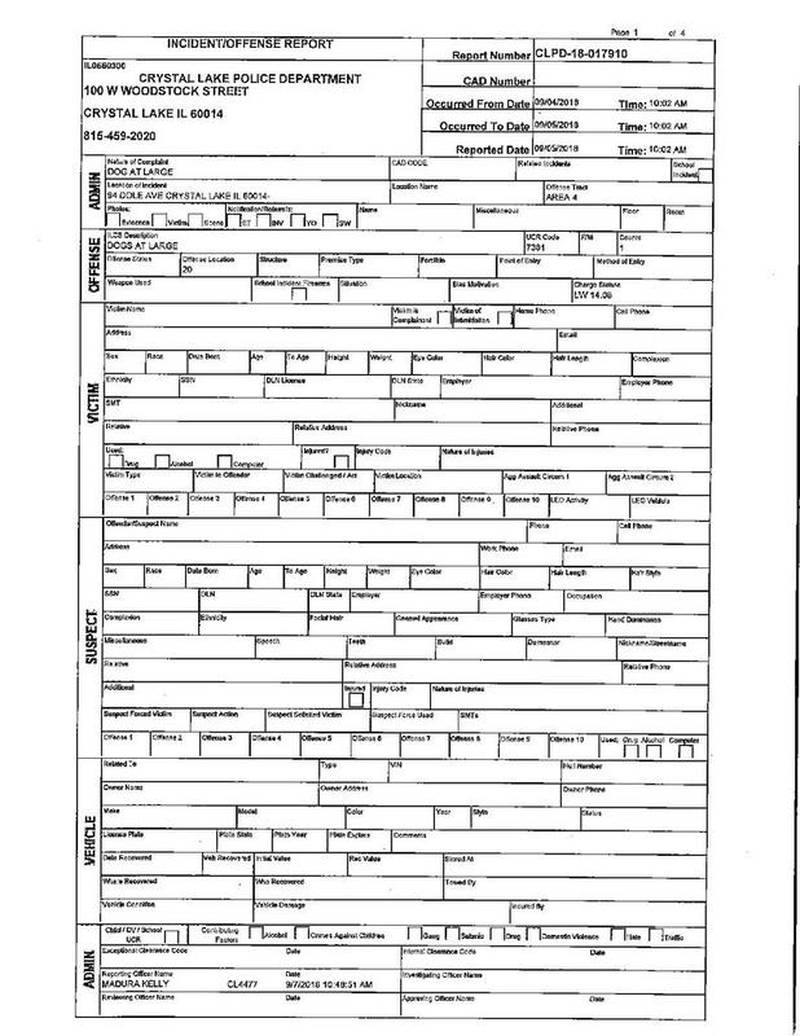 Page 1 of 4
INCIDENT/OFFENSE REPORT
Report Number CLPD-18-017910
IL0560300
CRYSTAL LAKE POLICE DEPARTMENT
CAD Number
100 W WOODSTOCK STREET
Occurred From Date 09/04/2018 Time: 10:02 AM
CRYSTAL LAKE IL 60014
Occurred To Date 09/05/2018 Time: 10:02 AM
815-459-2020
Reported Date 09/05/2018 Time: 10:02 AM
ADMIN
Nature of Complaint CAD CODE Related Incidents School Incident
DOG AT LARGE
Location of Incident Location Name Offense Tract
94 DOLE AVE CRYSTAL LAKE IL 60014- AREA 4
Photos: Notification/Referrals: Name Miscellaneous Floor Room
Evidence Victim Scene ST INV YO SW
OFFENSE
ILCS Description UCR Code Counts
DOGS AT LARGE 7381 1
Offense Status Offense Location Structure Premise Type Forcible Point of Entry Method of Entry
20
Weapon Used School Incident Firearms Situation Bias Motivation Charge Statute
LW 14.08
VICTIM
Victim Name Victim is Complainant Victim of Intimidation Home Phone Cell Phone
Address Email
Sex Race Date Born Age To Age Height Weight Eye Color Hair Color Hair Length Complexion
Ethnicity SSN DLN License DLN State Employer Employer Phone
SMT Nickname Additional
Relative Relative Address Relative Phone
Used: Injured? Injury Code Nature of Injuries
Drug Alcohol Computer
Victim Type Victim to Offender Victim Challenged / Act Victim Location Agg Assault Circum 1 Agg Assault Circum 2
Offense 1 Offense 2 Offense 3 Offense 4 Offense 5 Offense 6 Offense 7 Offense 8 Offense 9 Offense 10 LEO Activity LEO Vehicle
SUSPECT
Offender/Suspect Name Phone Cell Phone
Address Work Phone Email
Sex Race Date Born Age To Age Height Weight Eye Color Hair Color Hair Length Hair Style
SSN DLN DLN State Employer Employer Phone Occupation
Complexion Ethnicity Facial Hair General Appearance Glasses Type Hand Dominance
Miscellaneous Speech Teeth Build Demeanor Nickname/Streetname
Relative Relative Address Relative Phone
Additional Injured Injury Code Nature of Injuries
Suspect Forced Victim Suspect Action Suspect Solicited Victim Suspect Force Used SMTs
Offense 1 Offense 2 Offense 3 Offense 4 Offense 5 Offense 6 Offense 7 Offense 8 Offense 9 Offense 10 Used: Drug Alcohol Computer
VEHICLE
Related To Type VIN Hull Number
Owner Name Owner Address Owner Phone
Make Model Color Year Style Status
License Plate Plate State Plate Year Plate Expires Comments
Date Recovered Veh Recovered Initial Value Rec Value Stored At
Where Recovered Who Recovered Towed By
Vehicle Condition Vehicle Damage Insured By
ADMIN
Child / DV / School UCR Contributing Factors Alcohol Crimes Against Children Gang Satanic Drug Domestic Violence Hate Traffic
Exceptional Clearance Code Date Internal Clearance Code Date
Reporting Officer Name Date Investigating Officer Name
MADURA KELLY CL4477 9/7/2018 10:48:51 AM
Reviewing Officer Name Date Approving Officer Name Date